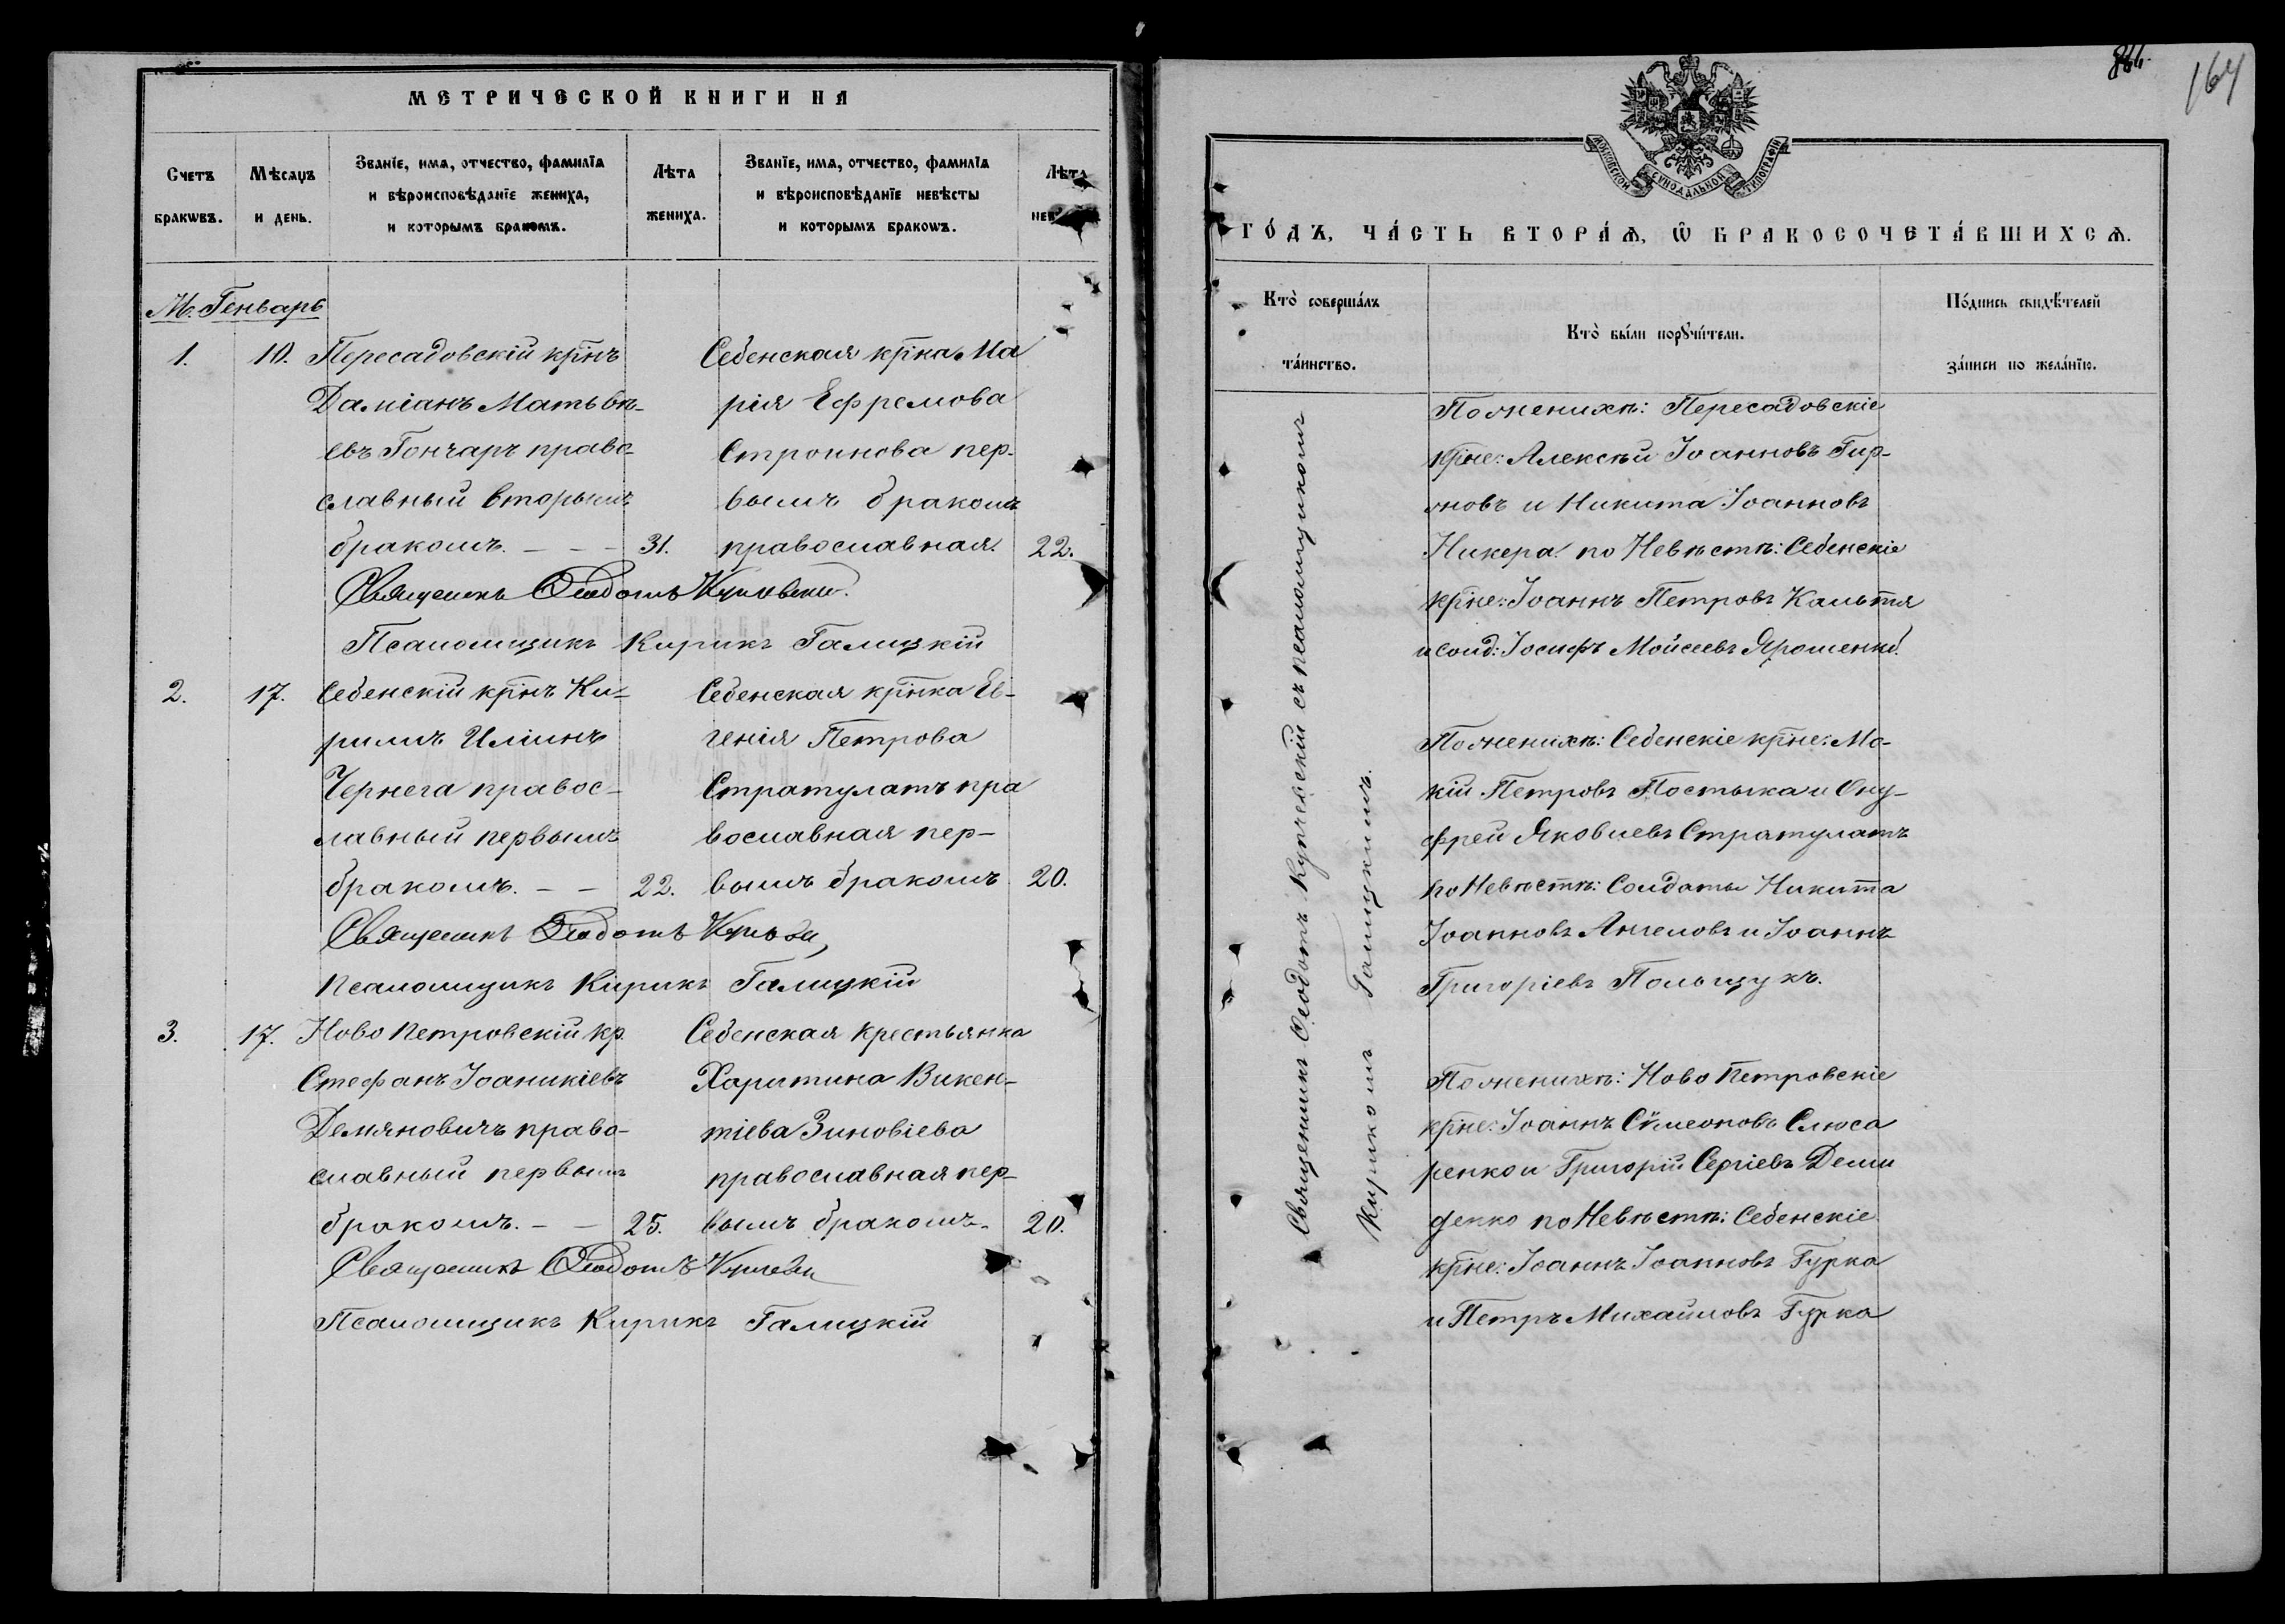 МЕТРИЧЕСКОЙ КНИГИ НА
Счетъ
бракѡвъ.
Мѣсяцъ
и день.
Званїе, имѧ, отчество, фамилїѧ
и вѣроисповѣданїе жениха,
и которымъ бракомъ.
Лѣта
жениха.
Званїе, имѧ, отчество, фамилїѧ
и вѣроисповѣданїе невѣсты
и которымъ бракомъ.
Лѣта
М. Генварь
1. 10. Пересадовскій кр̃нъ
Даміанъ Матьвѣ-
евъ Гончаръ право-
славный вторымъ
бракомъ. — — — 31.
Себенская кр̃нка Ма
рія Ефремова
Строинова пер-
вымъ бракомъ
православная. 22.
Священикъ Ѳеодотъ
Псаломщикъ Кирикъ Галицкій
2. 17. Себенскій кр̃нъ Ки-
рилъ Иліинъ
Чернега правос-
лавный первымъ
бракомъ. — — 22.
Себенская кр̃нка Ев-
генія Петрова
Стратулатъ пра
вославная пер-
вымъ бракомъ 20.
Священикъ Ѳеодотъ
Псаломщикъ Кирикъ Галицкій
3. 17. Ново Петровскій кр.
Стефанъ Іоаникіевъ
Демяновичъ право-
славный первымъ
бракомъ. — — 25.
Себенская крестьянка
Харитина Викен-
тіева Зиновіева
православная пер-
вымъ бракомъ. 20.
Священикъ Ѳеодотъ
Псаломщикъ Кирикъ Галицкій
164
МОСКОВСКОЙ СѴНОДАЛЬНОЙ ТИПОГРАФІИ
ГО́ДЪ, ЧА́СТЬ ВТОРА́Ѧ, Ѽ БРАКОСОЧЕТА́ВШИХСѦ.
Кто̀ соверша́лъ
та́инство.
Кто̀ бы́ли порꙋчи́тели.
По́дпись свидѣ́телей
за́писи по жела́нїю.
Священникъ Ѳеодотъ Купчевскій съ псаломщикомъ
Кирикомъ Галицкимъ.
По женихѣ: Пересадовскіе
кр̃не: Алексѣй Іоанновъ Гир-
жовъ и Никита Іоанновъ
Никера по Невѣстѣ: Себенскіе
кр̃не: Іоаннъ Петровъ Кальтя
и солд: Іосифъ Мойсеевъ Ярошенко.
По женихѣ: Себенскіе кр̃не: Мо-
кій Петровъ Постыка и Ону-
фрей Яковлевъ Стратулатъ
по Невѣстѣ: Солдаты Никита
Іоанновъ Ангеловъ и Іоаннъ
Григоріевъ Польщукъ.
По женихѣ: Ново Петровскіе
кр̃не: Іоаннъ Сѵмеоновъ Слюса
ренко и Григорій Сергіевъ Деми
денко по Невѣстѣ: Себенскіе
кр̃не: Іоаннъ Іоанновъ Гурка
и Петръ Михайловъ Гурка